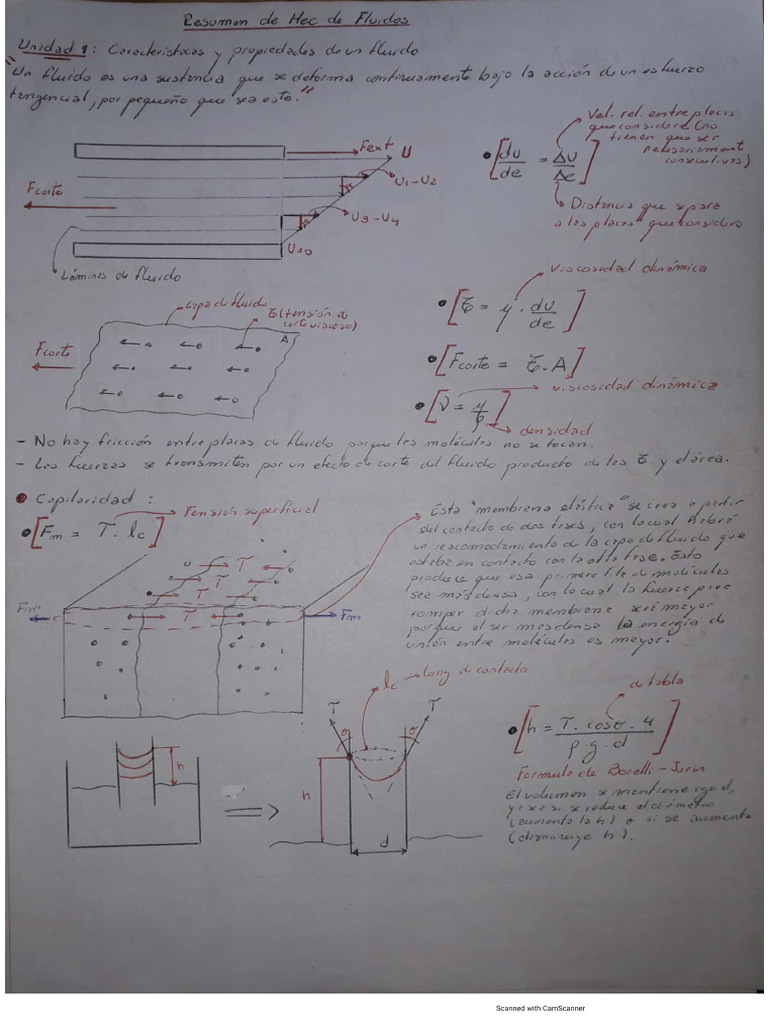 Resumen de Mec de Fluidos
Unidad 1: Características y propiedades de un fluido
"Un fluido es una sustancia que se deforma continuamente bajo la acción de un esfuerzo
tangencial, por pequeño que sea este."
Fext
U
U1-U2
U3-U4
U=0
Fcorte
Láminas de fluido
[du/de = ΔU/Δe]
Vel. rel. entre placas
que considere (no
tienen que ser
necesariamente
consecutivas)
Distancia que separa
a las placas que considero
capa de fluido
τ (tensión de
corte viscoso)
A
Fcorte
viscosidad dinámica
[τ = μ . du/de]
[Fcorte = τ.A]
viscosidad dinámica
[ν = μ/ρ]
densidad
- No hay fricción entre placas de fluido porque las moléculas no se tocan.
- Las fuerzas se transmiten por un efecto de corte del fluido producto de las τ y el área.
Capilaridad:
[Fm = T. lc]
Tensión superficial
Esta "membrana elástica" se crea a partir
del contacto de dos fases, con lo cual habrá
un reacomodamiento de la capa de fluido que
estaba en contacto con la otra fase. Esto
produce que esa primera fila de moléculas
sea más densa, con lo cual la fuerza para
romper dicha membrana será mayor
porque al ser mas densa la energía de
unión entre moléculas es mayor.
T
T
T
T
Fm
Fm
lc
long. de contacto
T
T
θ
θ
h
h
d
de tabla
[h = T. cosθ. 4 / ρ.g.d]
Formula de Borelli - Jurin
El volumen se mantiene igual,
(aumenta la h) o si se aumenta
(disminuye h).
Scanned with CamScanner